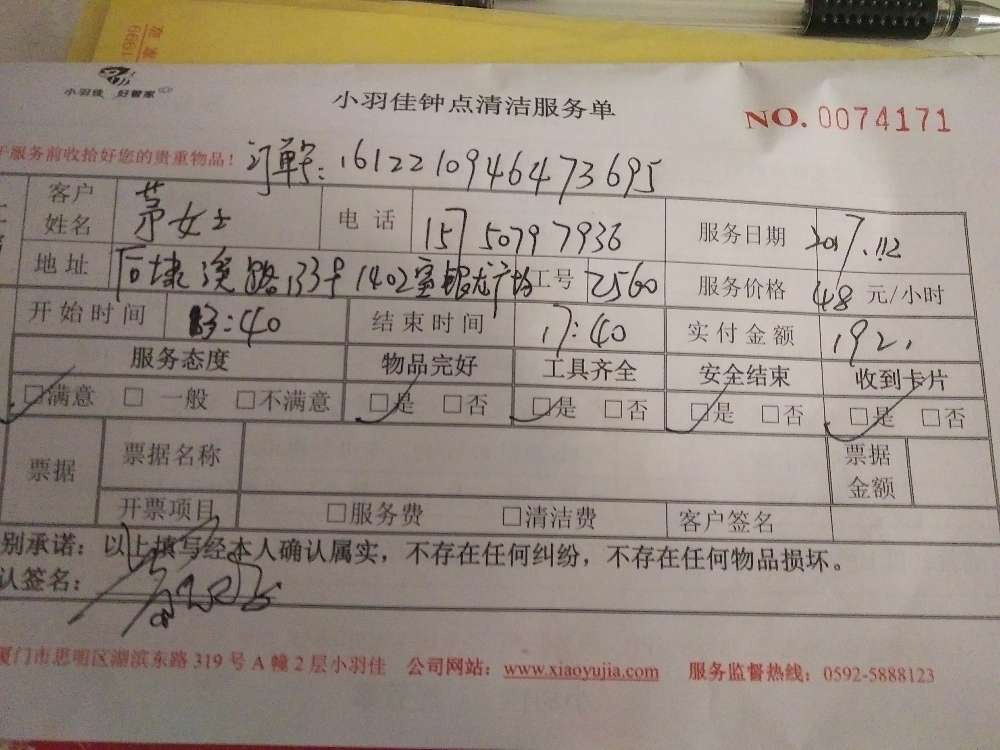 1999
家政
小羽佳 好管家
小羽佳钟点清洁服务单
NO. 0074171
于服务前收拾好您的贵重物品！ 订单号：1612210946473695
客户姓名 茅女士 电话 15750797936 服务日期 2017.1.12
地址 后埭溪路133号1402室银龙广场 工号 2560 服务价格 48 元/小时
开始时间 13:40 结束时间 17:40 实付金额 192.
服务态度 物品完好 工具齐全 安全结束 收到卡片
☑满意 □ 一般 □不满意 ☑是 □否 ☑是 □否 ☑是 □否 ☑是 □否
票据 票据名称 票据金额
开票项目 □服务费 □清洁费 客户签名
别承诺：以上填写经本人确认属实，不存在任何纠纷，不存在任何物品损坏。
认签名：
厦门市思明区湖滨东路 319 号 A 幢 2 层小羽佳 公司网站：www.xiaoyujia.com 服务监督热线：0592-5888123